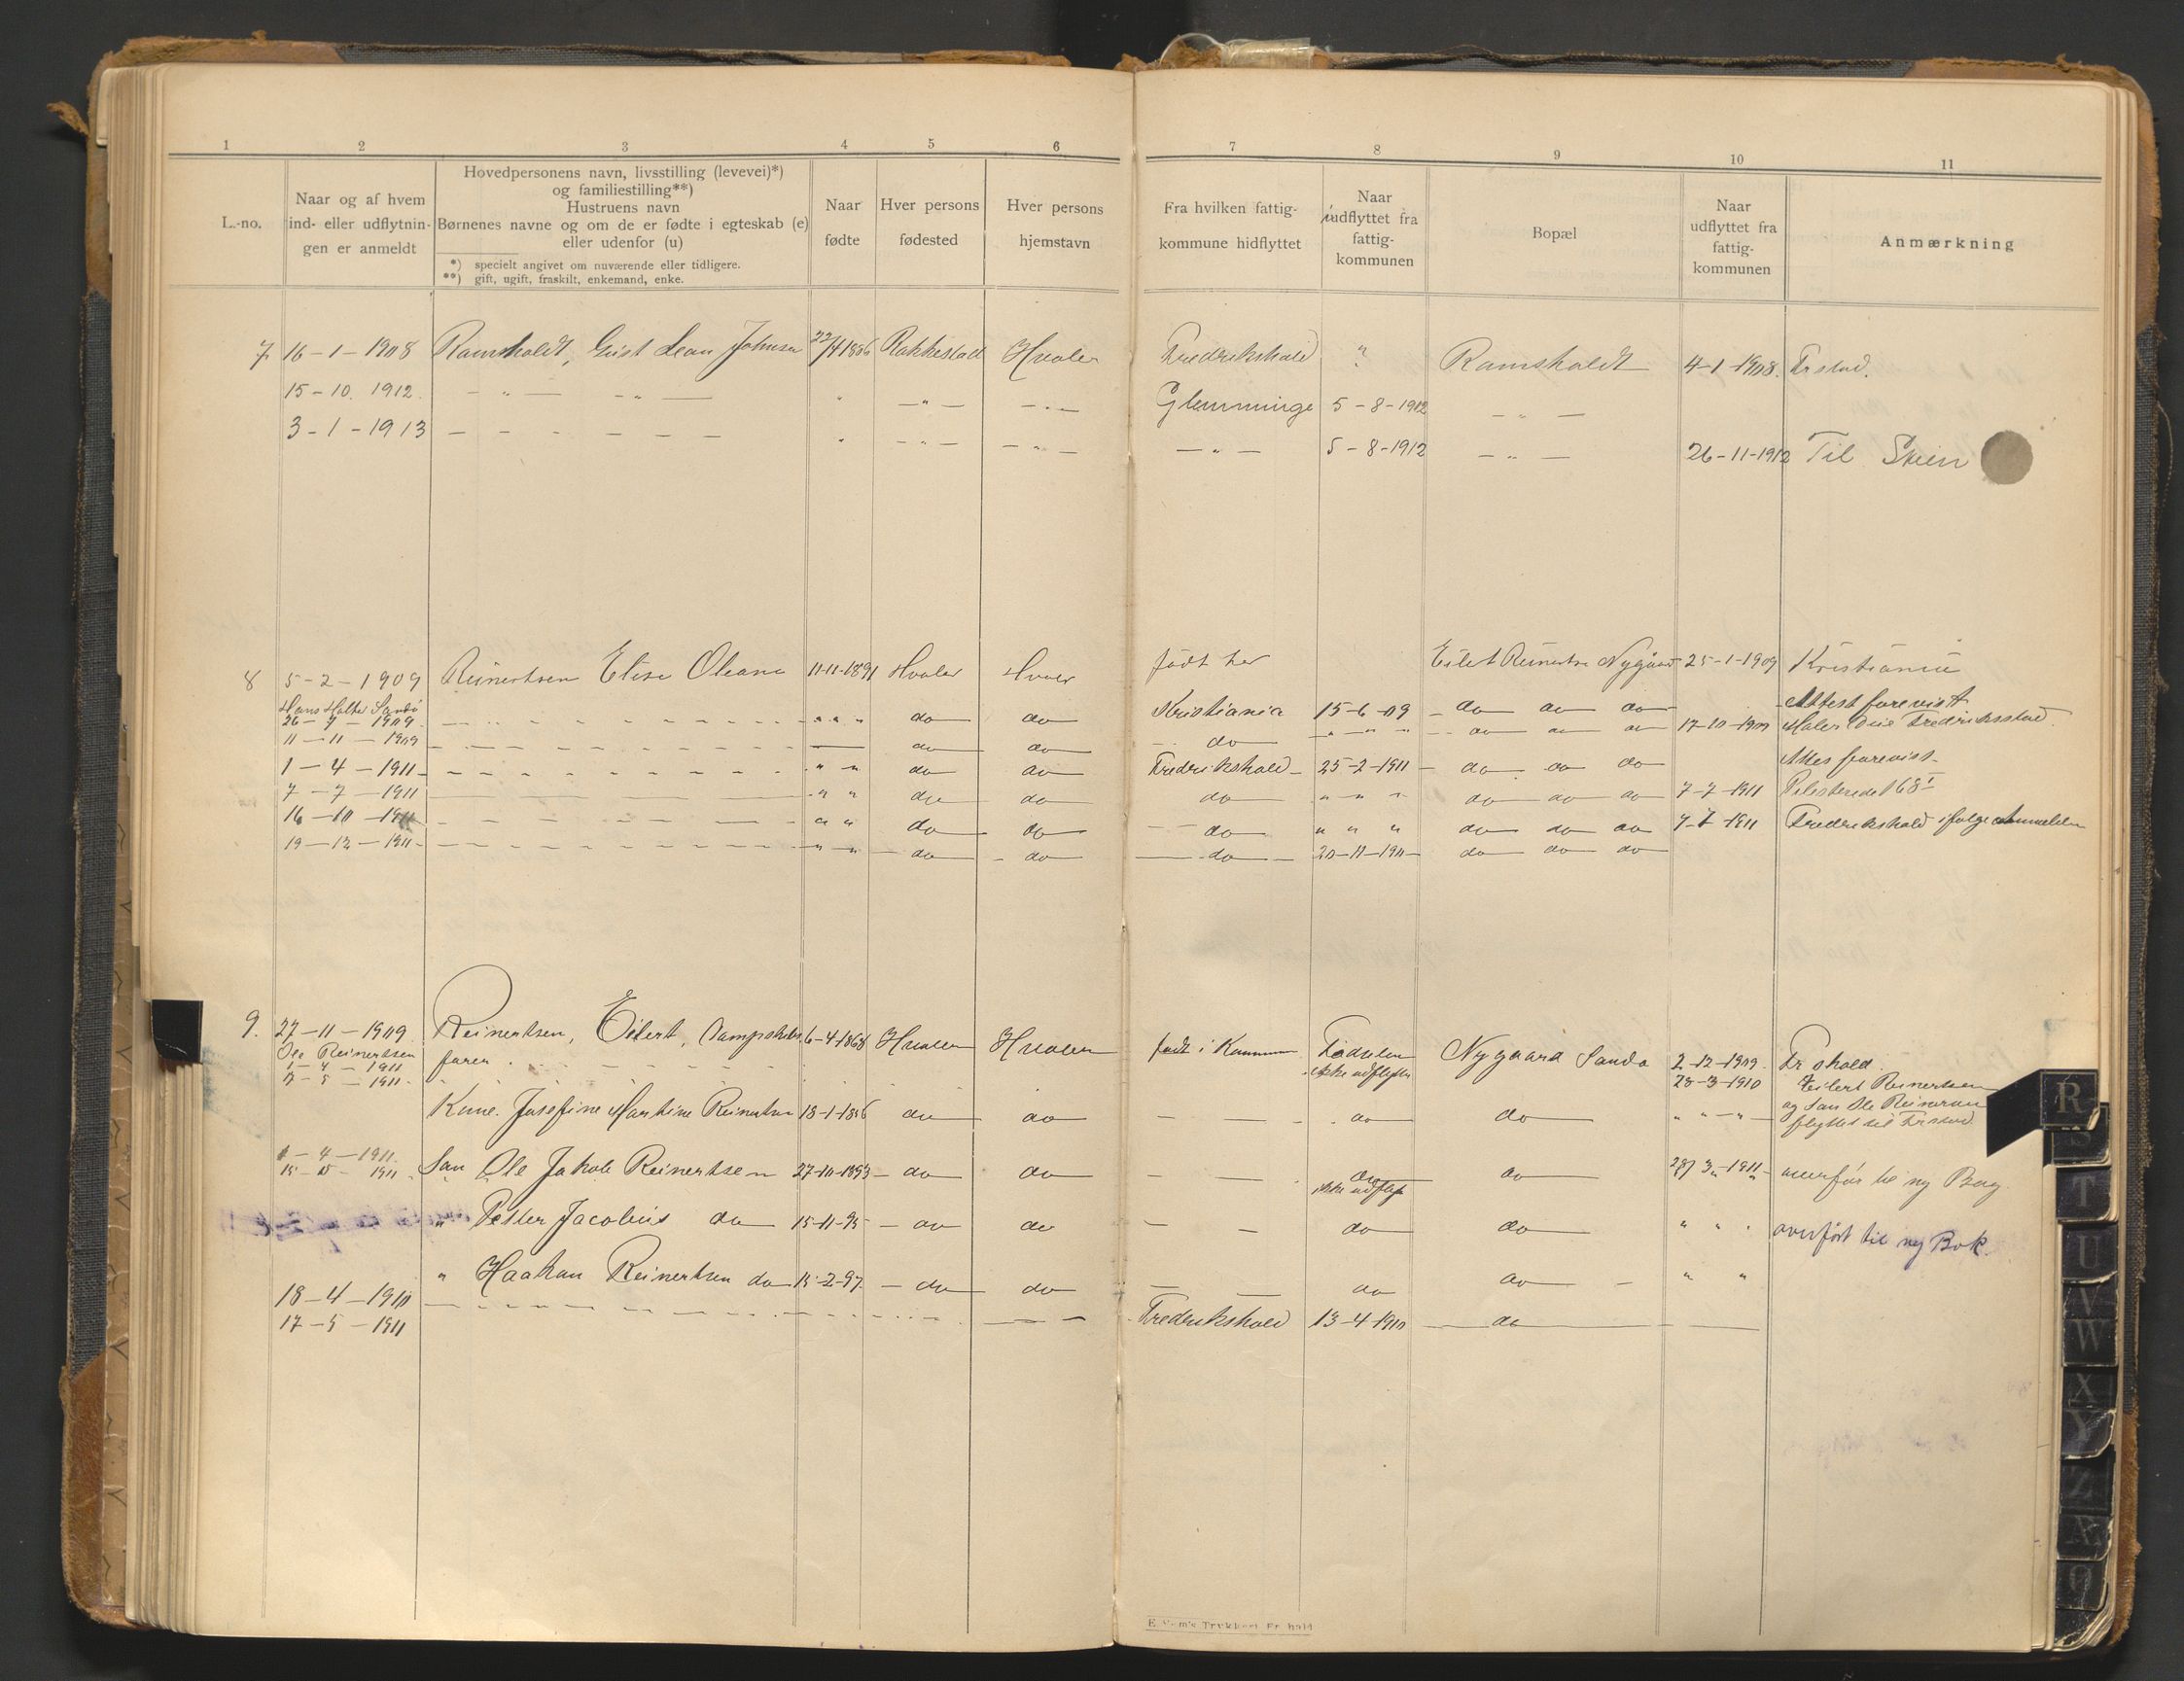 1 2 3 4 5 6 7 8 9 10 11
L.-no.
Naar og af hvem
ind- eller udflytnin-
gen er anmeldt
Hovedpersonens navn, livsstilling (levevei)*)
og familiestilling**)
Hustruens navn
Børnenes navne og om de er fødte i egteskab (e)
eller udenfor (u)
*) specielt angivet om nuværende eller tidligere.
**) gift, ugift, fraskilt, enkemand, enke.
Naar
fødte
Hver persons
fødested
Hver persons
hjemstavn
Fra hvilken fattig-
kommune hidflyttet
Naar
indflyttet fra
fattig-
kommunen
Bopæl
Naar
udflyttet fra
fattig-
kommunen
Anmærkning
7 16-1-1908 Ramsholdt, Johnsen 22/4 Rakkestad Hvaler Fredrikshald " Ramsholdt 4-1-1908. Frstad.
15-10. 1912. — " — — " — " — " — — " — Glemminge 5-8-1912 — " —
3-1-1913 — — — — — — " — " — — " — — " — 5-8-1912 — " — 26-11-1912 Til Skien
8 5-2-1909 Reinertsen Elise Oleane 11-11-1891 Hvaler Hvaler født her Eilert Reinertsen Nygaard 25-1-1909 Kristiania
Hans Holte Sandø
26-7-1909. " " " do do Kristiania 15-6-09 do do do Attest forevist
11-11-1909 do do do " " " do do do 17-10-1909 Fredriksstad
1-4-1911 " " do do Fredrikshald 25-2-1911 do do do forevist
7-7-1911 " " do do do " " " do do do 7-7-1911 168
16-10-1911 " " do do do " " " do do do 7-7-1911 Fredrikshald ifølge
19-12-1911 " " do do do 20-11-1911 do do do
9. 27-11-1909 Reinertsen, Eilert, Dampskibs 6-4-1868 Hvaler Hvaler født i Kommunen Fødselen Nygaard Sandø 2-12-1909. Frshald
Ole Reinertsen fører ikke udflyttet 28-3-1910 Eilert Reinertsen
1-4-1911
17-5-1911.
Kone. Josefine Martine Reinertsen 18-1- do do — — do do " " — " og Søn Ole Reinertsen
flyttet til Frstad
1-4-1911.
15-10-1911 Søn Ole Jakob Reinertsen 27-10-1893 do do — — do do 28/3 1911 overfør til ny Bog
ikke udflyt
" Petter Jacobus do 15-11-95 do do — — do do " " " overført til ny Bok.
" Haakon Reinertsen do 15-2-97 do do — — do do " "
18-4-1910 Fredrikshald 13-4-1910 do
17-5-1911
E. Sem's Trykkeri Fr.hald
R
S
T
U
V
W
X
Y
Z
Æ
Ø